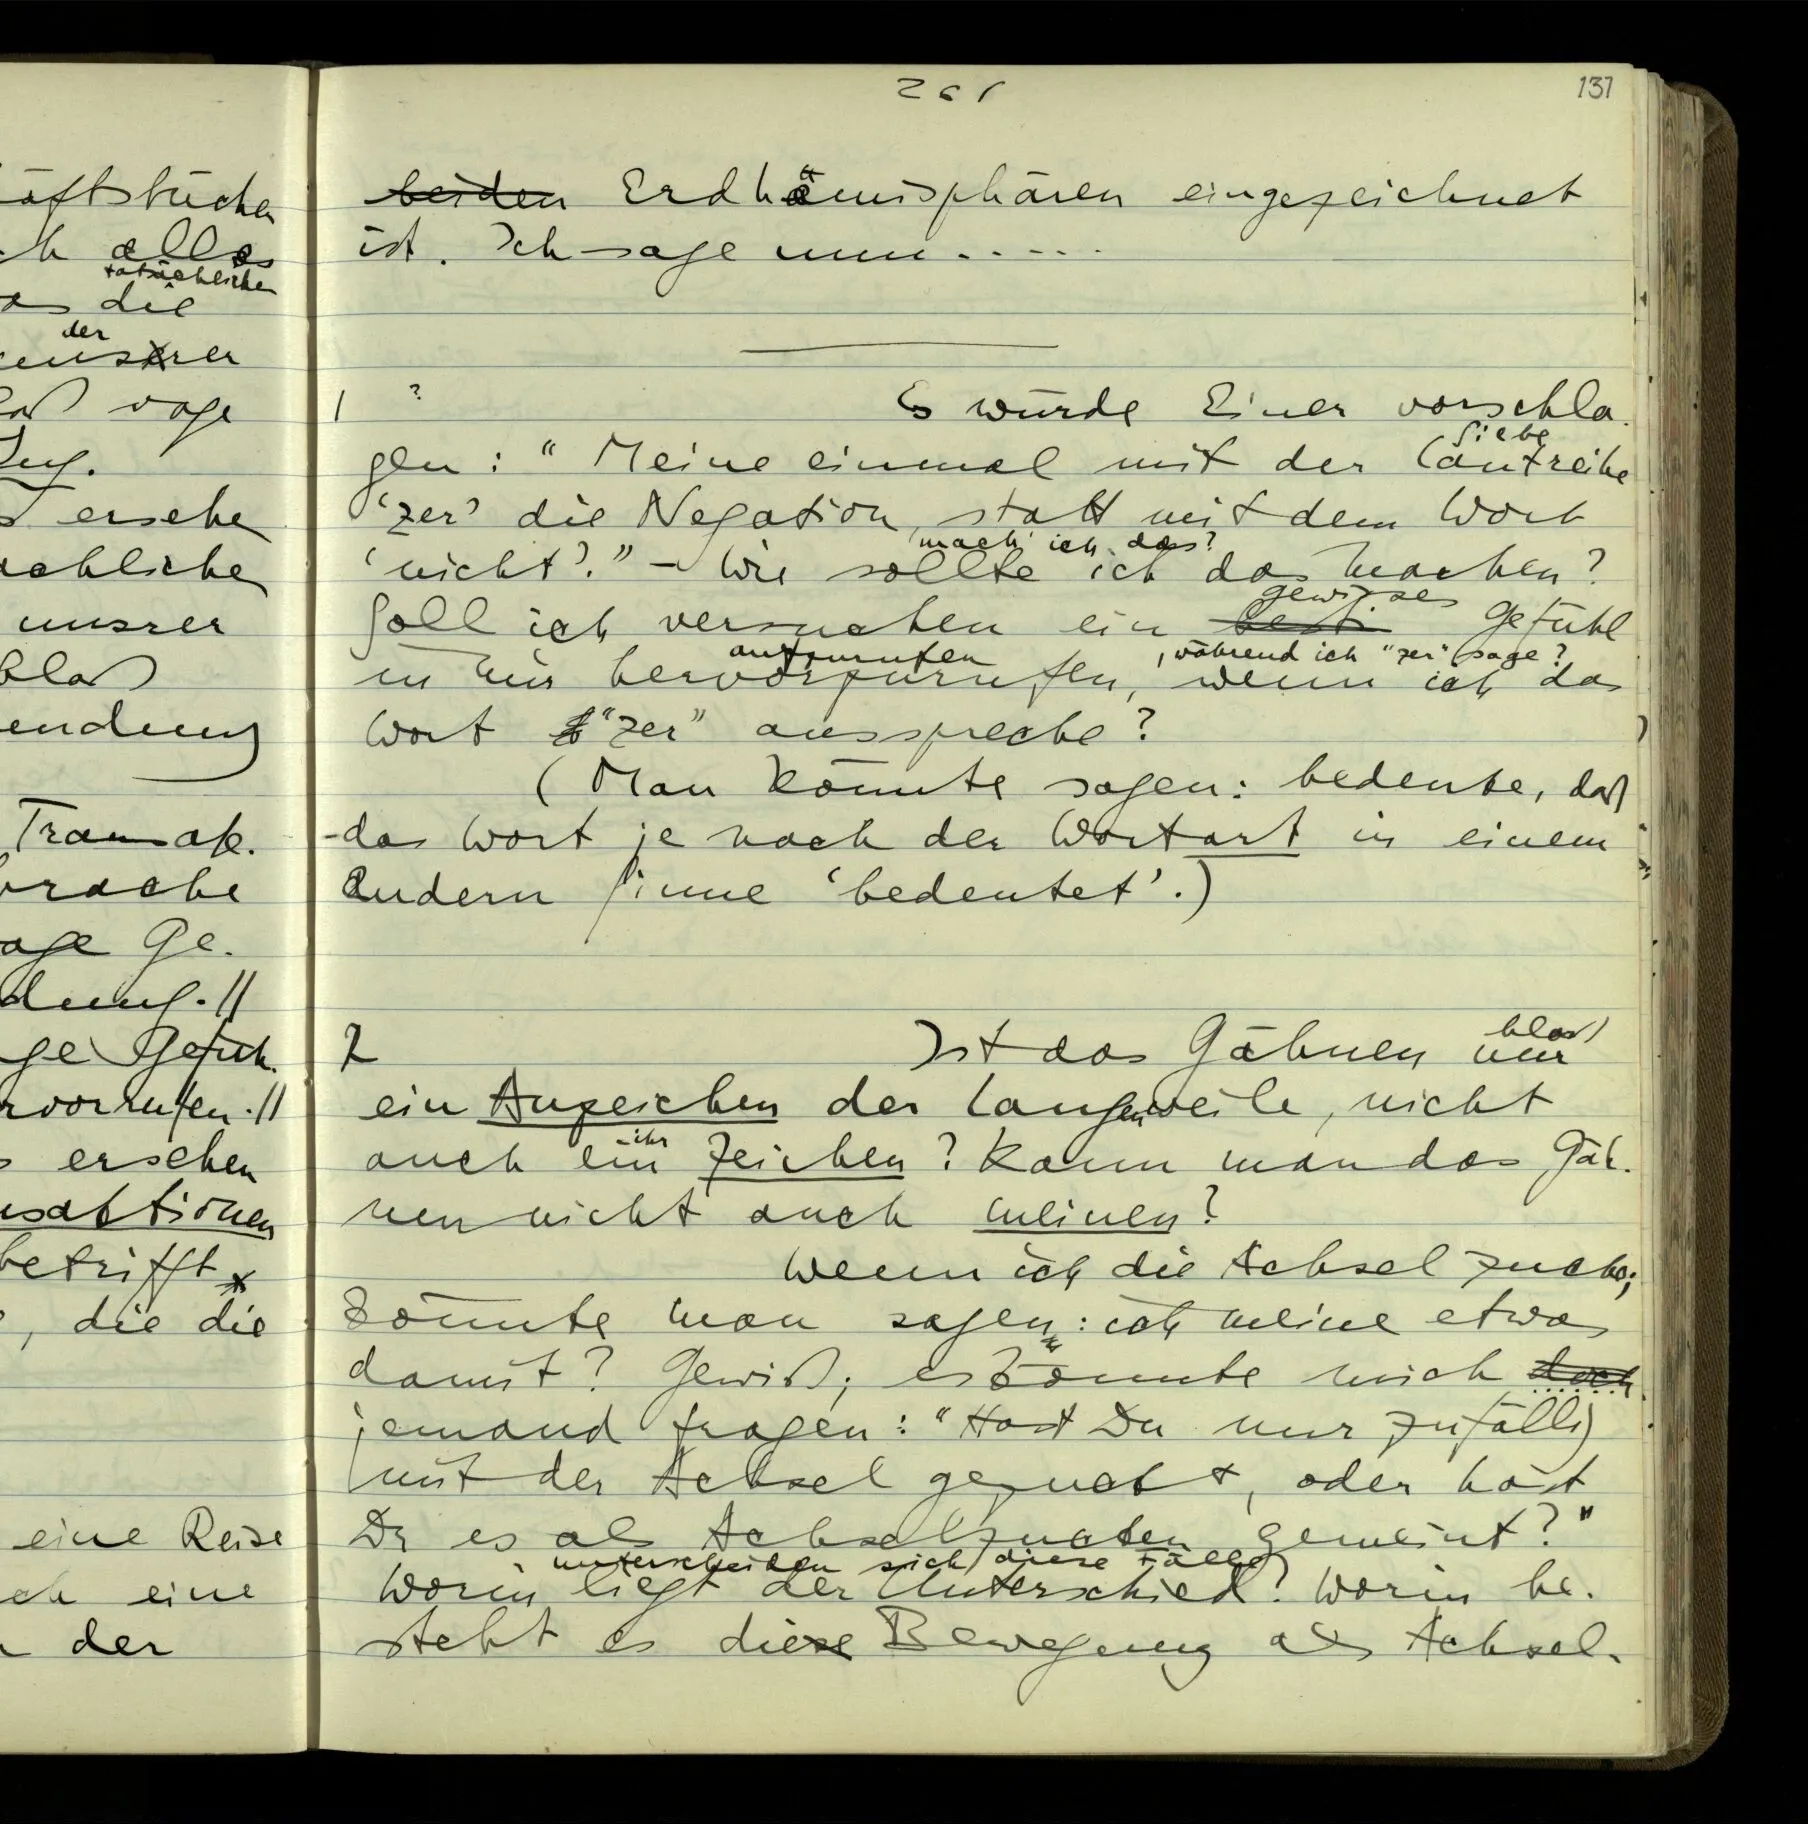 äftsbücher
h alles
tatsächlichen
as die
der
unserer
bloß vage
ersehe
achliche
unsrer
bloß
endung
Transak-
prache
age Ge-
dung.//
ge Gefüh-
rvorrufen.//
s ersehen
nsaktionen
betrifft
, die die
eine Reise
ch eine
der
261
131
beiden Erdhämisphären eingezeichnet
ist. Ich sage nun.....
1 ? Es würde Einer vorschla-
Silbe
gen: “Meine einmal mit der Lautreihe
‘zer’ die Negation, statt mit dem Wort
mach' ich das?
‘nicht’.” – Wie sollte ich das machen?
gewisses
Soll ich versuchen ein besti Gefühl
aufzurufen , während ich “zer” sage?
in mir hervorzurufen, wenn ich das
Wort “zer” ausspreche?
(Man könnte sagen: bedenke, daß
das Wort je nach der Wortart in einem
andern Sinne ‘bedeutet’.)
bloß
2 Ist das Gähnen nur
ein Anzeichen der Langenweile, nicht
ihr
auch ein Zeichen? Kann man das Gäh-
nen nicht auch meinen?
Wenn ich die Achsel zucke;
könnte man sagen: ich meine etwas
damit? Gewiß; es könnte mich doch
jemand fragen: “Hast Du nur zufällig
mit der Achsel gezuckt, oder hast
Du es als Achselzucken gemeint?”
unterscheiden sich diese Fälle
Worin liegt der Unterschied? Worin be-
steht es diese Bewegung als Achsel-